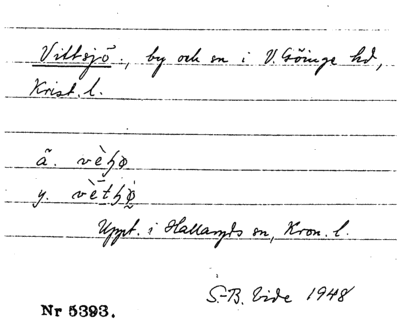 Vittsjö., by och sn i V. Göinge hd,
Krist. l.
ä. vèɧø
y. vètɧø
Uppt. i Hallaryds sn, Kron. l.
S.-B. Vide 1948
Nr 5393.